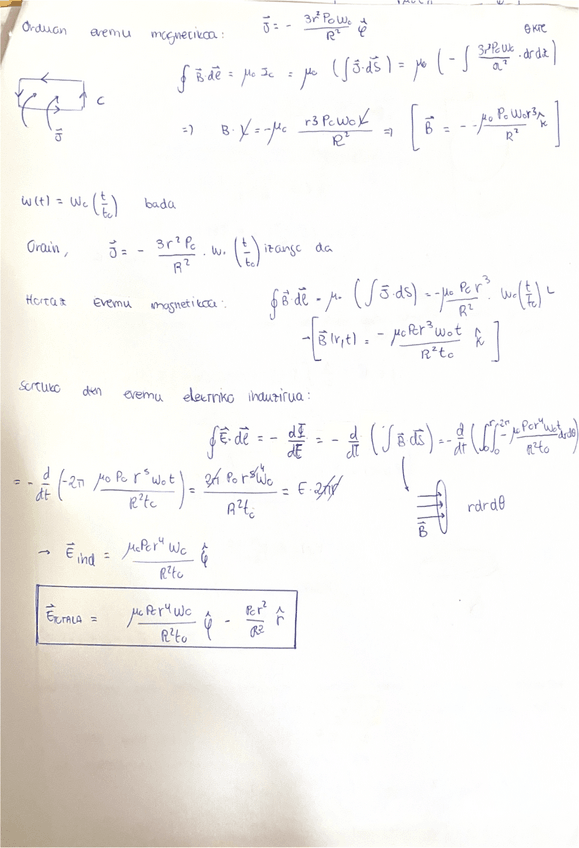 Orduan eremu magnetikoa: J⃗ = - 3r²ρ₀ω₀/R² φ̂
∮ B⃗ dℓ⃗ = μ₀ I_c = μ₀ (∫ J⃗·dS⃗) = μ₀ (- ∫ 3r²ρ₀ω₀/R² · dr dz)
C
J⃗
=> B·L = -μ₀ r³ρ₀ω₀L/R² => [B⃗ = - μ₀ρ₀ω₀r³/R² k̂]
ω(t) = ω₀ (t/t₀) bada
Orain, J⃗ = - 3r²ρ₀/R² · ω₀ (t/t₀) izango da
Hortaz eremu magnetikoa: ∮ B⃗ dℓ⃗ = μ₀ (∫ J⃗·dS) = -μ₀ρ₀r³/R² · ω₀ (t/t₀) L
→ [B⃗(r,t) = - μ₀ρ₀r³ω₀t/R²t₀ k̂]
sortuko den eremu elektriko induzitua:
∮ E⃗·dℓ⃗ = - dΦ/dt = - d/dt (∫ B⃗ dS⃗) = - d/dt (∫₀^r ∫₀^2π - μ₀ρ₀r⁴ω₀t/R²t₀ dr dθ)
= - d/dt (-2π μ₀ρ₀r⁵ω₀t/R²t₀) = 2π ρ₀r⁵ω₀/R²t₀ = E·2πr
B⃗
r dr dθ
→ E⃗ind = μ₀ρ₀r⁴ω₀/R²t₀ φ̂
E⃗TOTALA = μ₀ρ₀r⁴ω₀/R²t₀ φ̂ - ρ₀r²/R² r̂